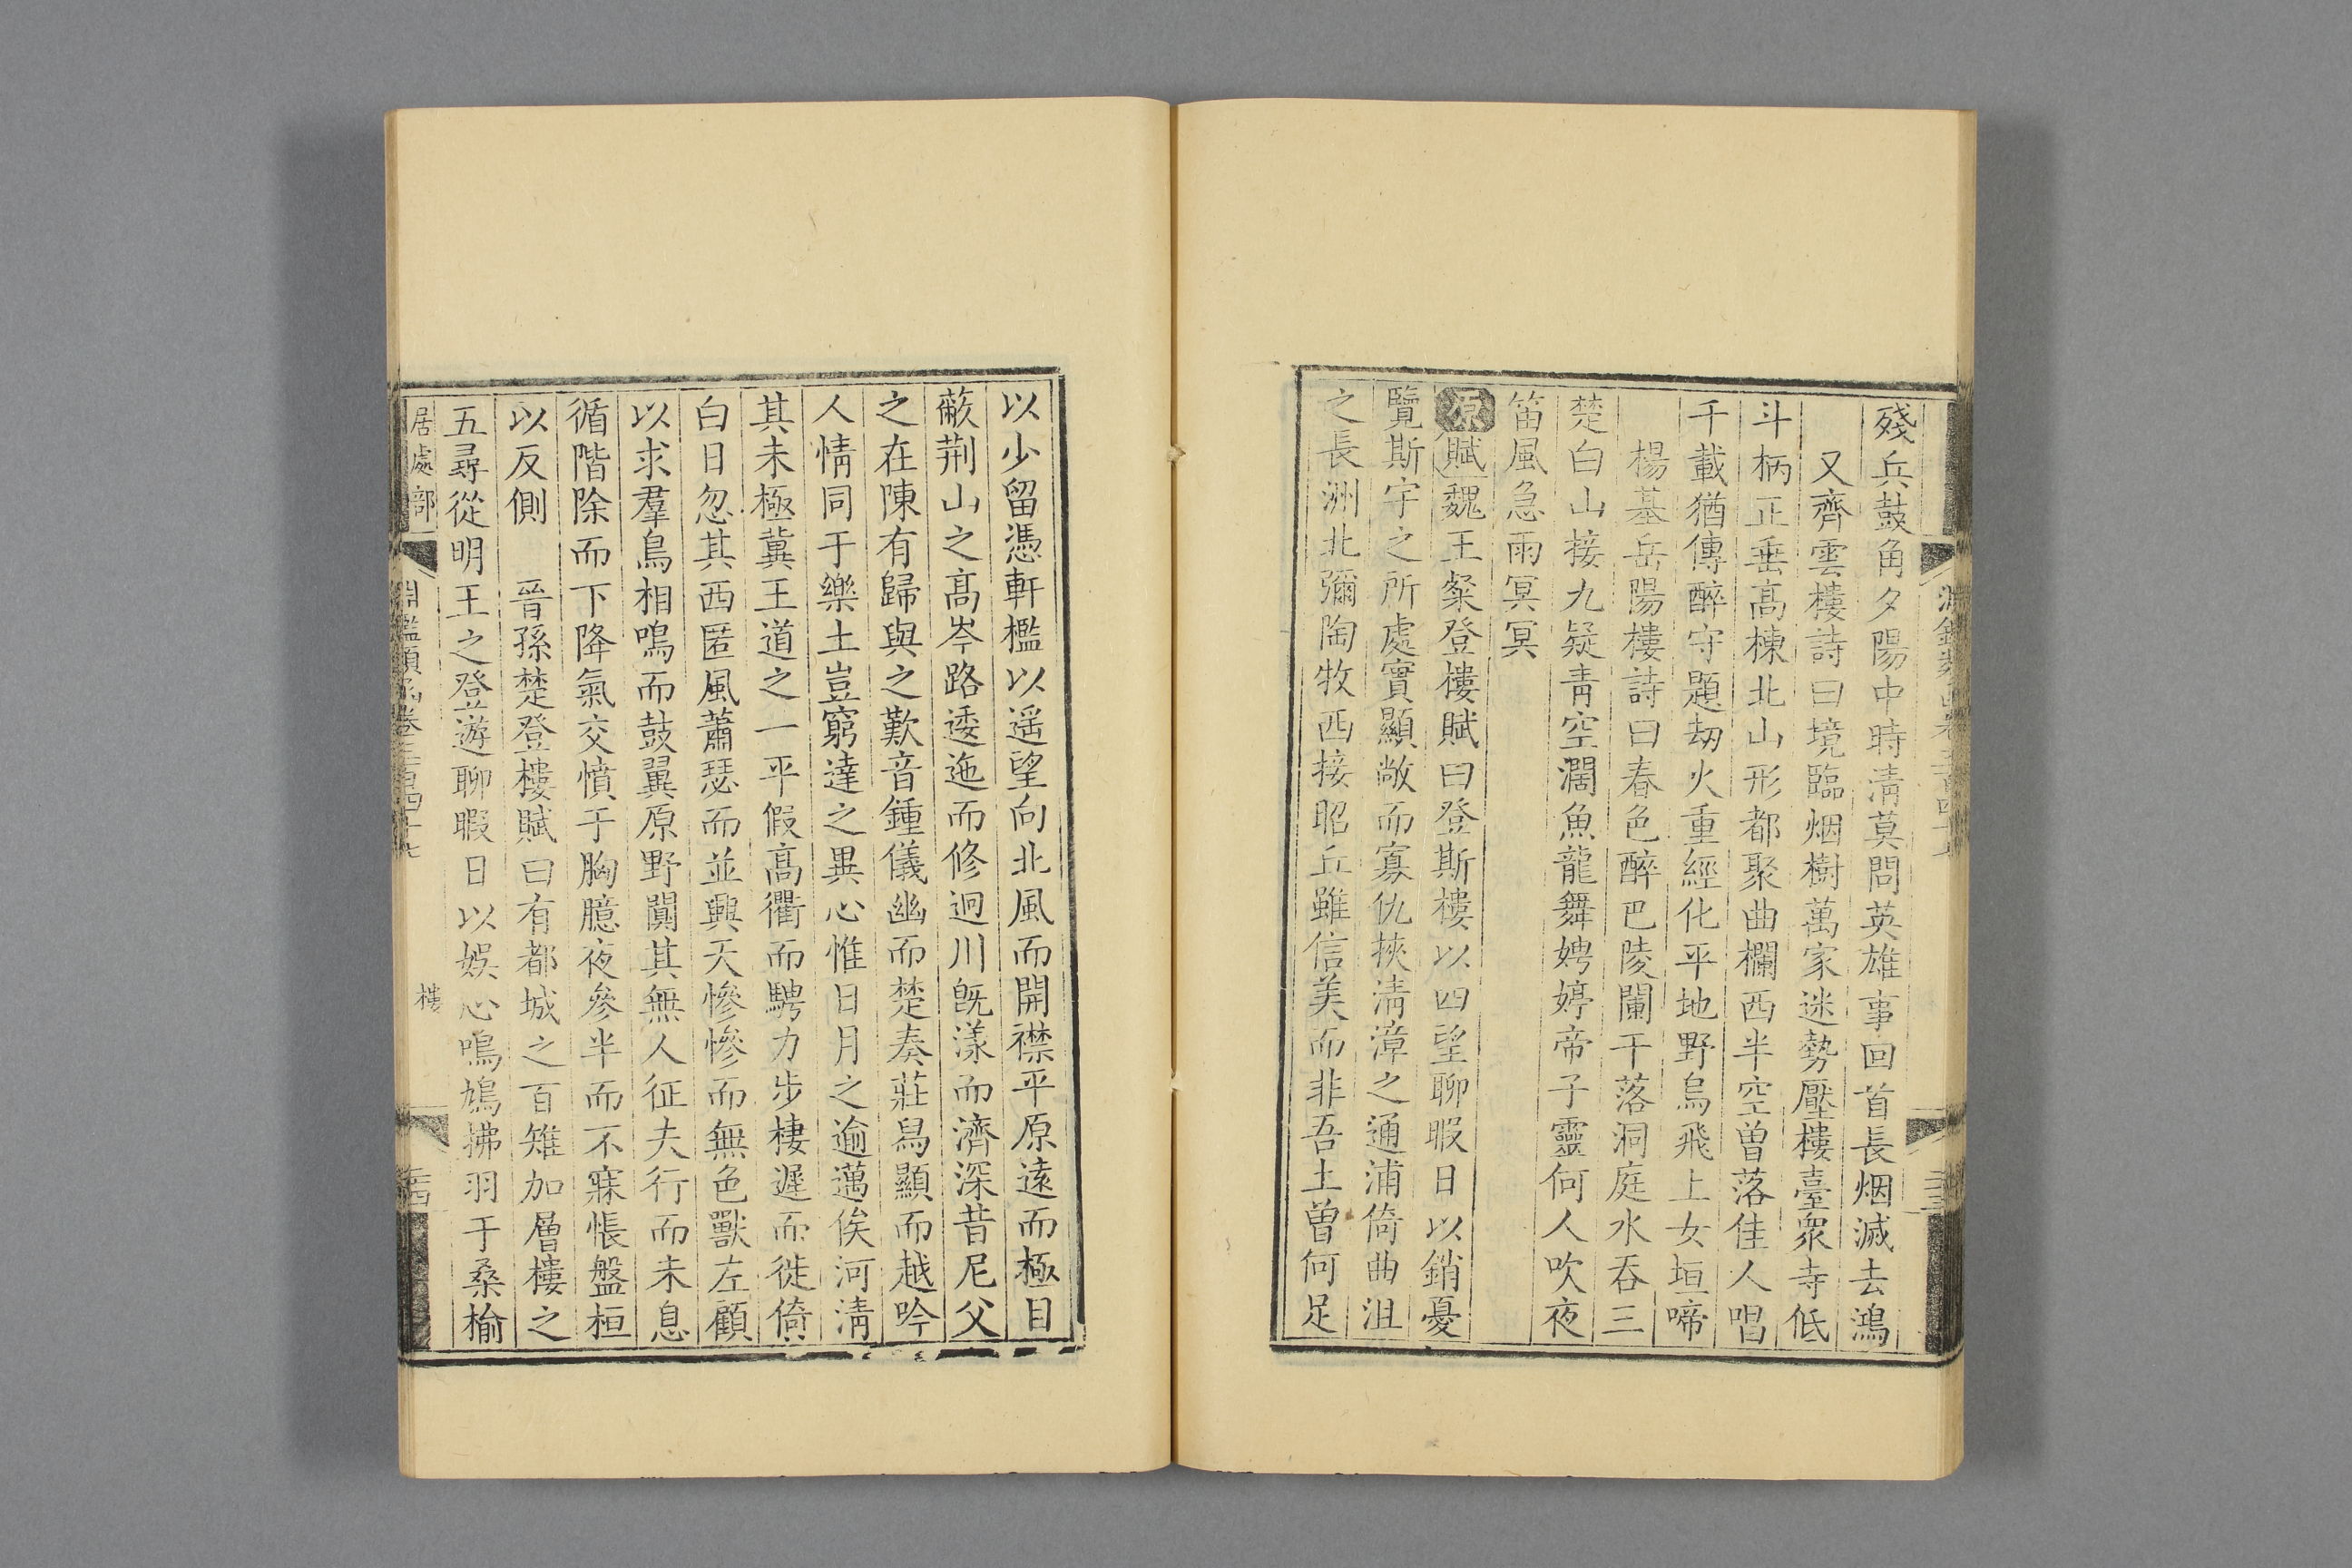 殘兵鼓角夕陽中時淸莫問英雄事回首長烟滅去鴻
又齊雲樓詩曰境臨烟樹萬家迷勢壓樓臺衆寺低
斗柄正垂高棟北山形都聚曲欄西半空曽落佳人唱
千載猶傳醉守題劫火重經化平地野烏飛上女垣啼
楊基岳陽樓詩曰春色醉巴陵闌干落洞庭水吞三
楚白山接九疑靑空濶魚龍舞娉婷帝子靈何人吹夜
笛風急雨冥冥
原賦魏王粲登樓賦曰登斯樓以四望聊暇日以銷憂
覽斯宇之所處實顯敞而寡仇挾淸漳之通浦倚曲沮
之長洲北彌陶牧西接昭丘雖信美而非吾土曽何足
以少留憑軒檻以遥望向北風而開襟平原遠而極目
蔽荆山之高岑路逶迤而修迥川旣漾而濟深昔尼父
之在陳有歸與之歎音鍾儀幽而楚奏莊舄顯而越吟
人情同于樂土豈窮達之異心惟日月之逾邁俟河淸
其未極冀王道之一平假高衢而騁力步棲遲而徙倚
白日忽其西匿風蕭瑟而並興天慘慘而無色獸左顧
以求羣鳥相鳴而鼓翼原野闃其無人征夫行而未息
循階除而下降氣交憤于胸臆夜參半而不寐悵盤桓
以反側　晉孫楚登樓賦曰有都城之百雉加層樓之
五尋從明王之登遊聊暇日以娛心鳴鳩拂羽于桑榆
居處部　淵鑑類函卷三百四十七　樓　三四